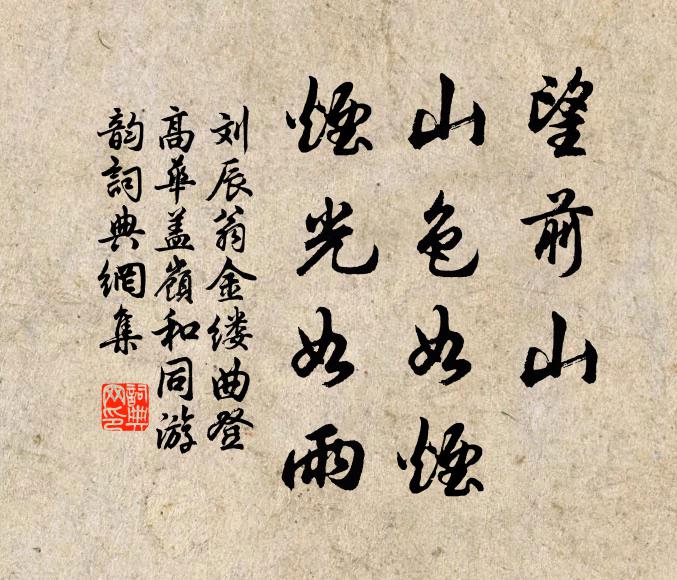 望前山
山色如煙
煙光如雨
刘辰翁金缕曲登
高華盖嶺和同游
韵詞典網集
詞典網印